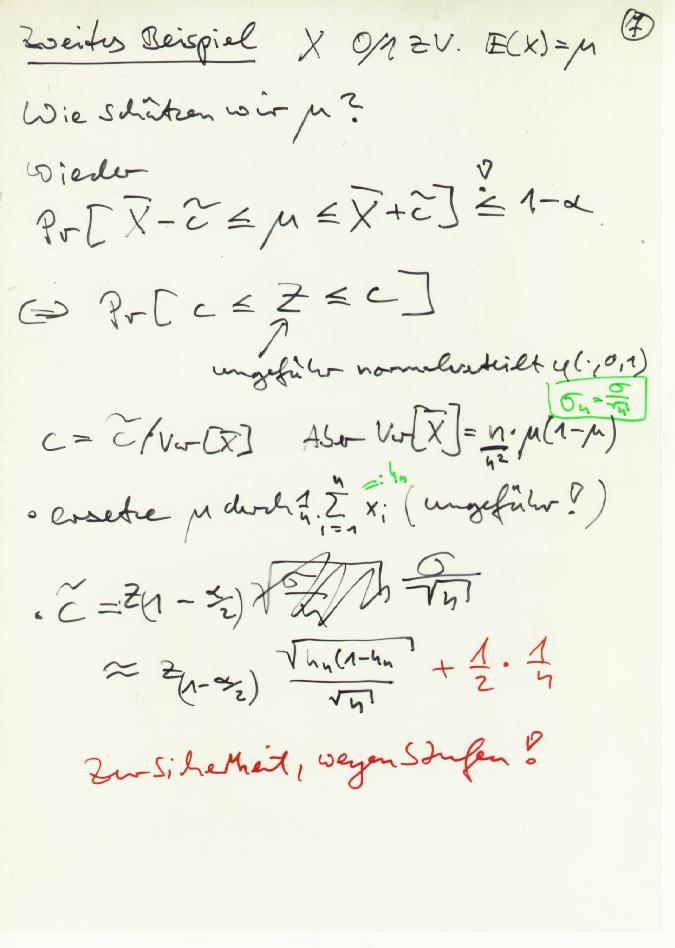 Zweites Beispiel X 0/1 ZV. E(X)=μ ⑦
Wie schätzen wir μ?
Wieder
Pr[ X̄ - c̃ ≤ μ ≤ X̄ + c̃ ] ≤! 1-α
⇔ Pr[ c ≤ Z ≤ c ]
ungefähr normalverteilt φ(·,0,1)
σₙ = σ/√n
c = c̃/Var[X̄] Aber Var[X̄] = n/n² · μ(1-μ)
• ersetze μ durch 1/n · Σ_{i=1}^{n} xᵢ =: hₙ (ungefähr!)
• c̃ = z(1 - α/2) σ/√n
≈ z_(1-α/2) √(hₙ(1-hₙ / √n + 1/2 · 1/n
Zur Sicherheit, wegen Stufen!